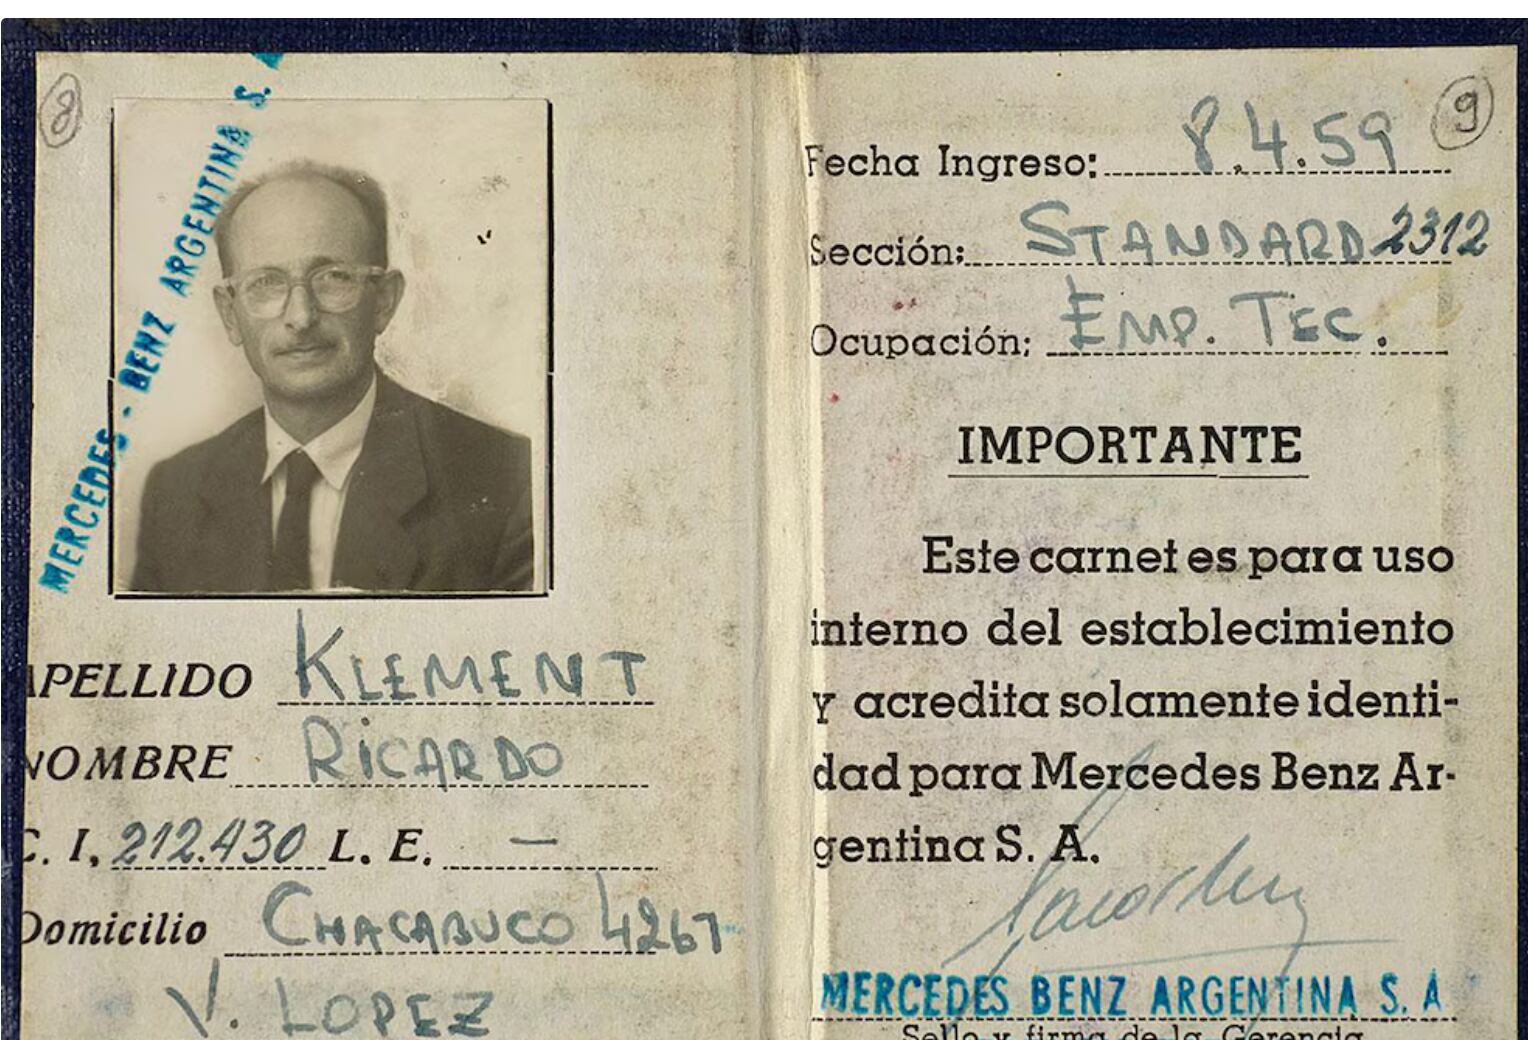 8
MERCEDES - BENZ ARGENTINA S. A
APELLIDO KLEMENT
NOMBRE RICARDO
C. I, 212.430 L. E. —
Domicilio CHACABUCO 4267
V. LOPEZ
9
Fecha Ingreso: 8.4.59
Sección: STANDARD 2312
Ocupación: EMP. TEC.
IMPORTANTE
Este carnet es para uso
interno del establecimiento
y acredita solamente identi-
dad para Mercedes Benz Ar-
gentina S. A.
MERCEDES BENZ ARGENTINA S. A
Sello y firma de la Gerencia